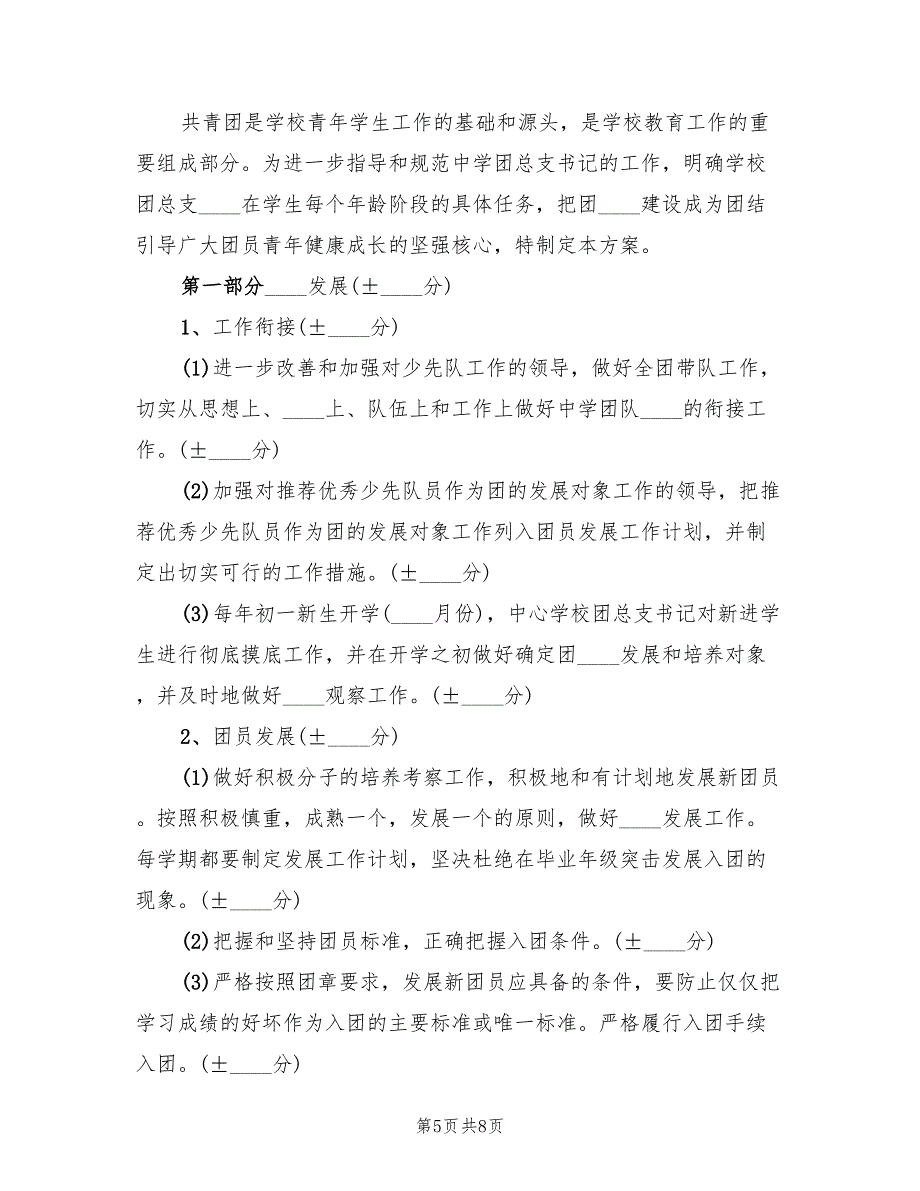 共青团是学校青年学生工作的基础和源头，是学校教育工作的重
要组成部分。为进一步指导和规范中学团总支书记的工作，明确学校
团总支____在学生每个年龄阶段的具体任务，把团____建设成为团结
引导广大团员青年健康成长的坚强核心，特制定本方案。
第一部分____发展(±____分)
1、工作衔接(±____分)
(1)进一步改善和加强对少先队工作的领导，做好全团带队工作，
切实从思想上、____上、队伍上和工作上做好中学团队____的衔接工
作。(±____分)
(2)加强对推荐优秀少先队员作为团的发展对象工作的领导，把推
荐优秀少先队员作为团的发展对象工作列入团员发展工作计划，并制
定出切实可行的工作措施。(±____分)
(3)每年初一新生开学(____月份)，中心学校团总支书记对新进学
生进行彻底摸底工作，并在开学之初做好确定团____发展和培养对象
，并及时地做好____观察工作。(±____分)
2、团员发展(±____分)
(1)做好积极分子的培养考察工作，积极地和有计划地发展新团员
。按照积极慎重，成熟一个，发展一个的原则，做好____发展工作。
每学期都要制定发展工作计划，坚决杜绝在毕业年级突击发展入团的
现象。(±____分)
(2)把握和坚持团员标准，正确把握入团条件。(±____分)
(3)严格按照团章要求，发展新团员应具备的条件，要防止仅仅把
学习成绩的好坏作为入团的主要标准或唯一标准。严格履行入团手续
入团。(±____分)
第5页 共8页